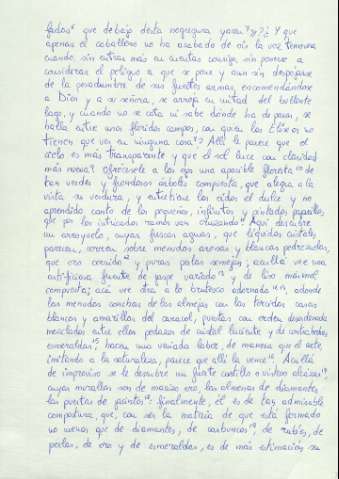 fadas⁴ que debajo desta negregura yacen? ¿Y que
apenas el caballero no ha acabado de oír la voz temerosa
cuando, sin entrar más en cuentas consigo, sin ponerse a
considerar el peligro a que se pone y aun sin despojarse
de la pesadumbre de sus fuertes armas, encomendándose
a Dios y a su señora, se arroja en mitad del bullente
lago, y cuando no se cata ni sabe dónde ha de parar, se
halla entre unos floridos campos, con quien los Elíseos no
tienen que ver en ninguna cosa? Allí le parece que el
cielo es más transparente y que el sol luce con claridad
más nueva. Ofrécesele a los ojos una apacible floresta de
tan verdes y frondosos árboles compuesta, que alegra a la
vista su verdura, y entretiene los oídos el dulce y no
aprendido canto de los pequeños, infinitos y pintados pajarillos
que por los intricados ramos van cruzando. Aquí descubre
un arroyuelo, cuyas frescas aguas, que líquidos cristales
parecen, corren sobre menudas arenas y blancas pedrezuelas,
que oro cernido¹² y puras perlas semejan; acullá vee una
artificiosa fuente de jaspe variado¹³ y de liso mármol
compuesta; acá vee otra a lo brutesco adornada¹⁴, adonde
las menudas conchas de las almejas con las torcidas casas
blancas y amarillas del caracol, puestas con orden desordenada
mezclados entre ellas pedazos de cristal luciente y de contrahechas
esmeraldas¹⁵ hacen una variada labor, de manera que el arte,
imitando a la naturaleza, parece que allí la vence¹⁶. Acullá
de improviso se le descubre un fuerte castillo o vistoso alcázar¹⁷
cuyas murallas son de macizo oro, las almenas de diamantes,
las puertas de jacintos¹⁸: finalmente, él es de tan admirable
compostura, que, con ser la materia de que está formado
no menos que de diamantes, de carbuncos¹⁹, de rubíes, de
perlas, de oro y de esmeraldas, es de más estimación su